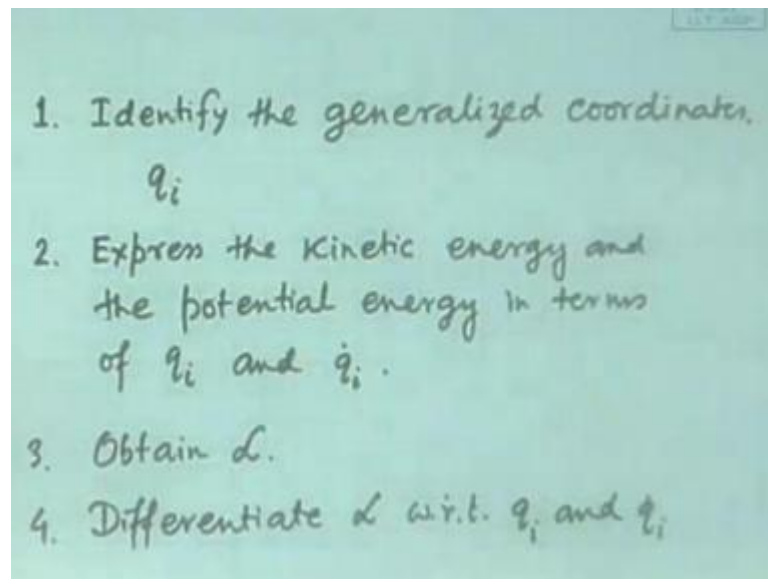 1. Identify the generalized coordinates.
qᵢ
2. Express the kinetic energy and
the potential energy in terms
of qᵢ and q̇ᵢ.
3. Obtain ℒ.
4. Differentiate ℒ w.r.t. qᵢ and q̇ᵢ